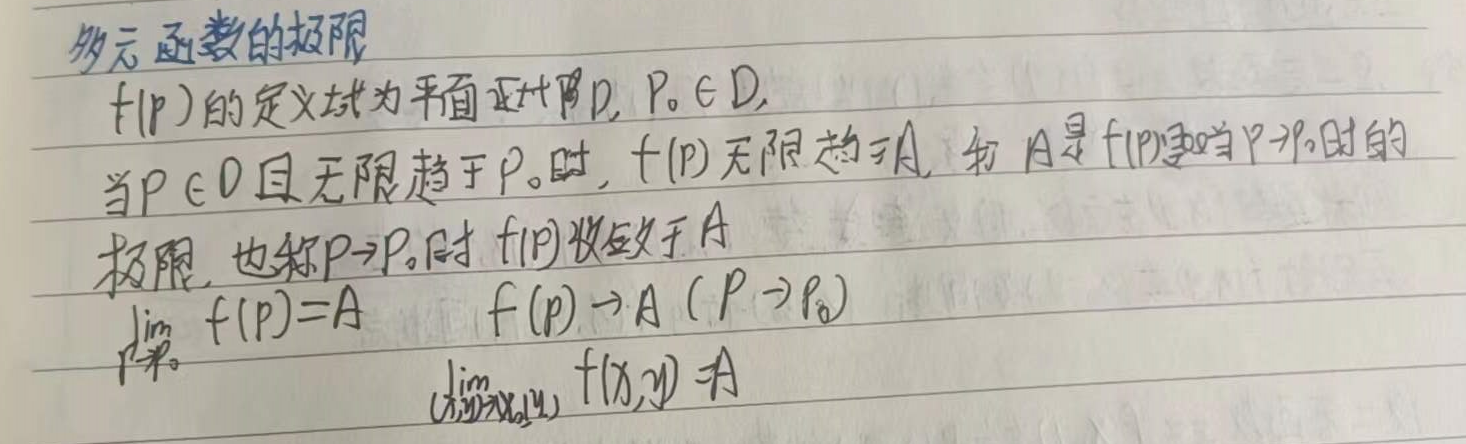 多元函数的极限
f(p)的定义域为平面 D, P₀∈D,
当P∈D且无限趋于P₀时, f(P)无限趋于A, 称 A是f(P)当P→P₀时的
极限, 也称P→P₀时 f(P)收敛于A
lim P→P₀ f(P)=A f(p)→A (P→P₀)
lim (x,y)→(x₀,y₀) f(x,y)=A